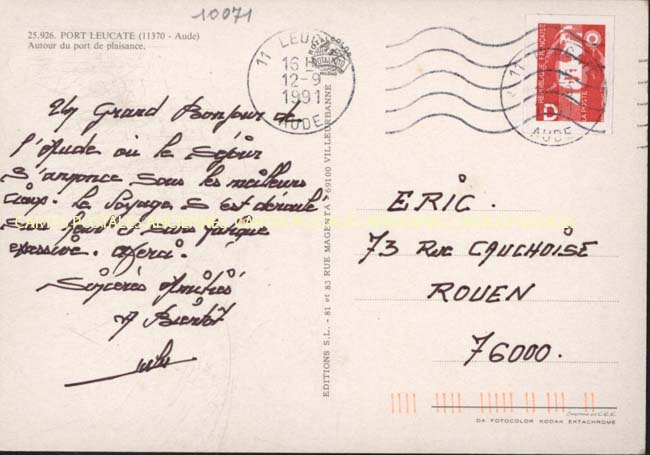 10071
25.926. PORT LEUCATE (11370 - Aude)
Autour du port de plaisance.
11 LEUC
16 H
12-9
1991
AUDE
REPUBLIQUE FRANÇAISE
LA POSTE
11
AUDE
Un Grand Bonjour de
l'Aude où le séjour
s'annonce sous les meilleurs
cieux. le voyage s'est déroulé
sans fatigue
excessive. Merci.
Sincères Amitiés
A Bientôt
EDITIONS S.L. - 81 et 83 RUE MAGENTA - 69100 VILLEURBANNE
ERIC.
73 Rue CAUCHOISE
ROUEN
76000.
DA FOTOCOLOR KODAK EKTACHROME